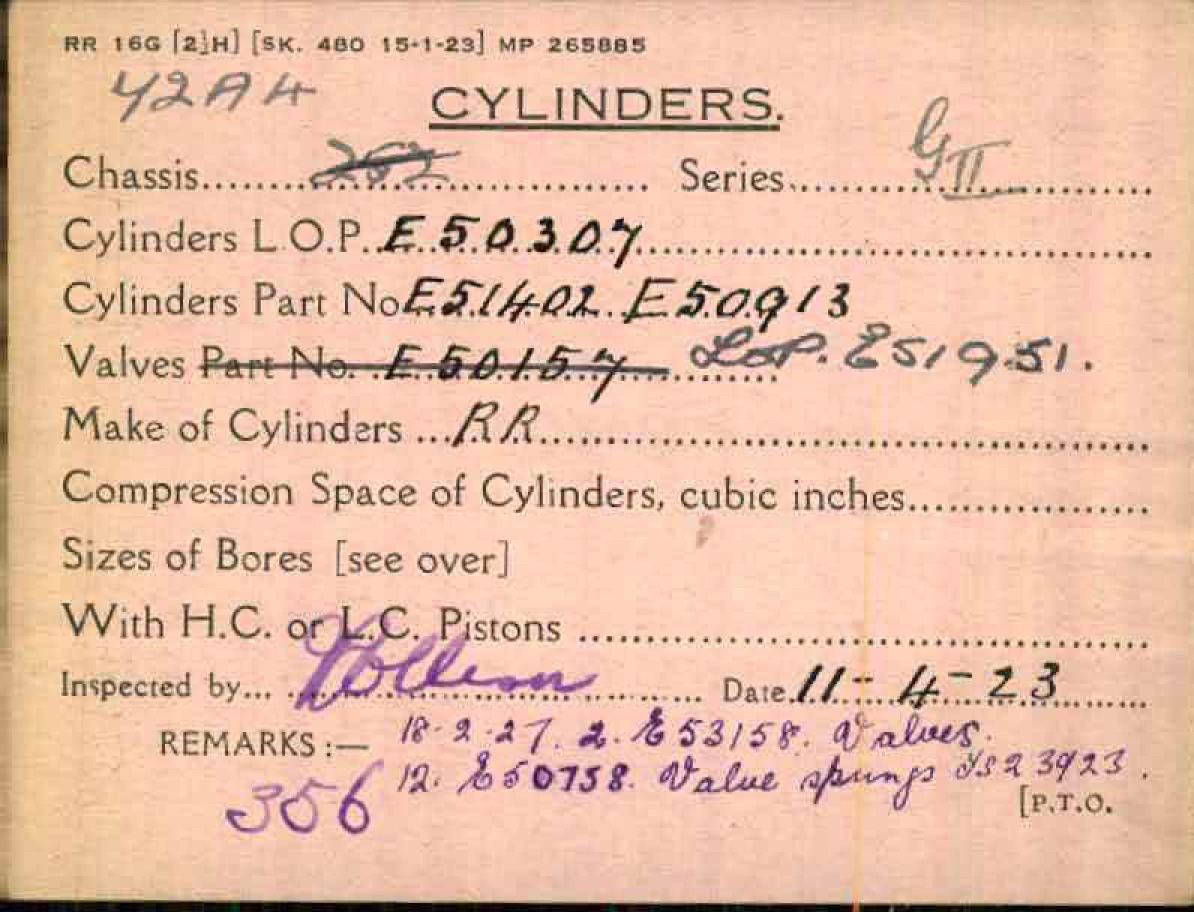 RR 16G [2½H] [SK. 480 15-1-23] MP 265885
42A4
CYLINDERS.
Chassis 252 Series GII
Cylinders L.O.P. E50307
Cylinders Part No E51402. E50913
Valves Part No. E50157 LOP. E51951.
Make of Cylinders RR
Compression Space of Cylinders, cubic inches
Sizes of Bores [see over]
With H.C. or L.C. Pistons
Inspected by Date 11-4-23
REMARKS:— 18-2-27. 2. E53158. Valves.
12. E50758. Valve springs 23923.
356
[P.T.O.